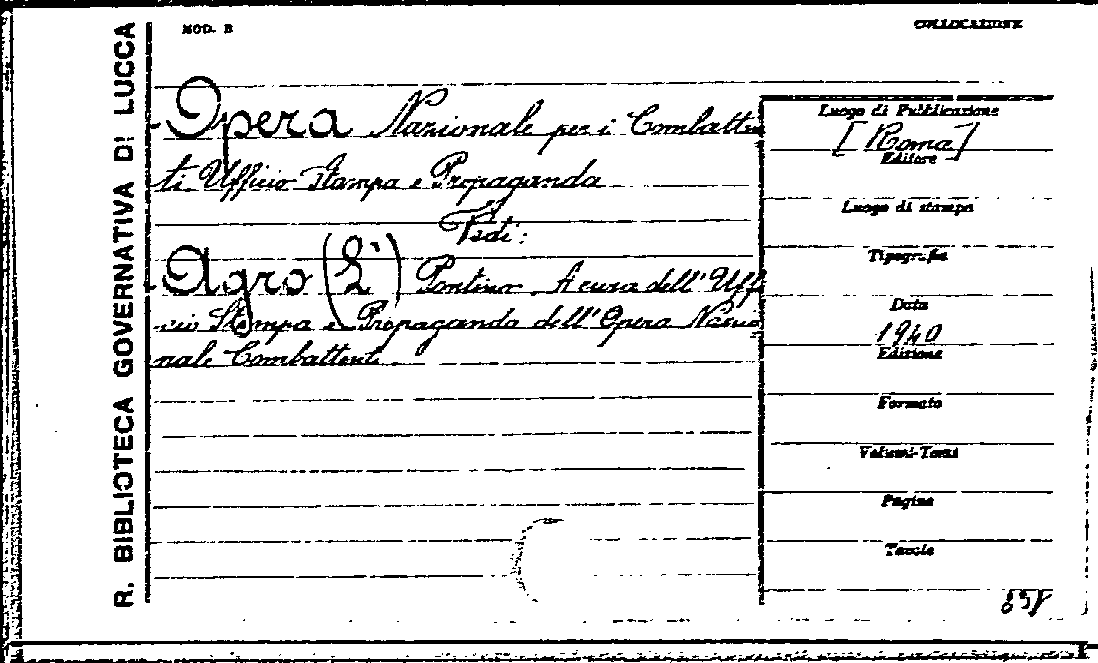 R. BIBLIOTECA GOVERNATIVA DI LUCCA
MOD. B
COLLOCAZIONE
Opera Nazionale per i Combatten
ti. Ufficio Stampa e Propaganda
Vedi:
Agro (L') Pontino. A cura dell' Uffi
cio Stampa e Propaganda dell' Opera Nazio
nale Combattenti.
Luogo di Pubblicazione
[Roma]
Editore
Luogo di stampa
Tipografia
Data
1940
Edizione
Formato
Volumi-Tomi
Pagine
Tavole